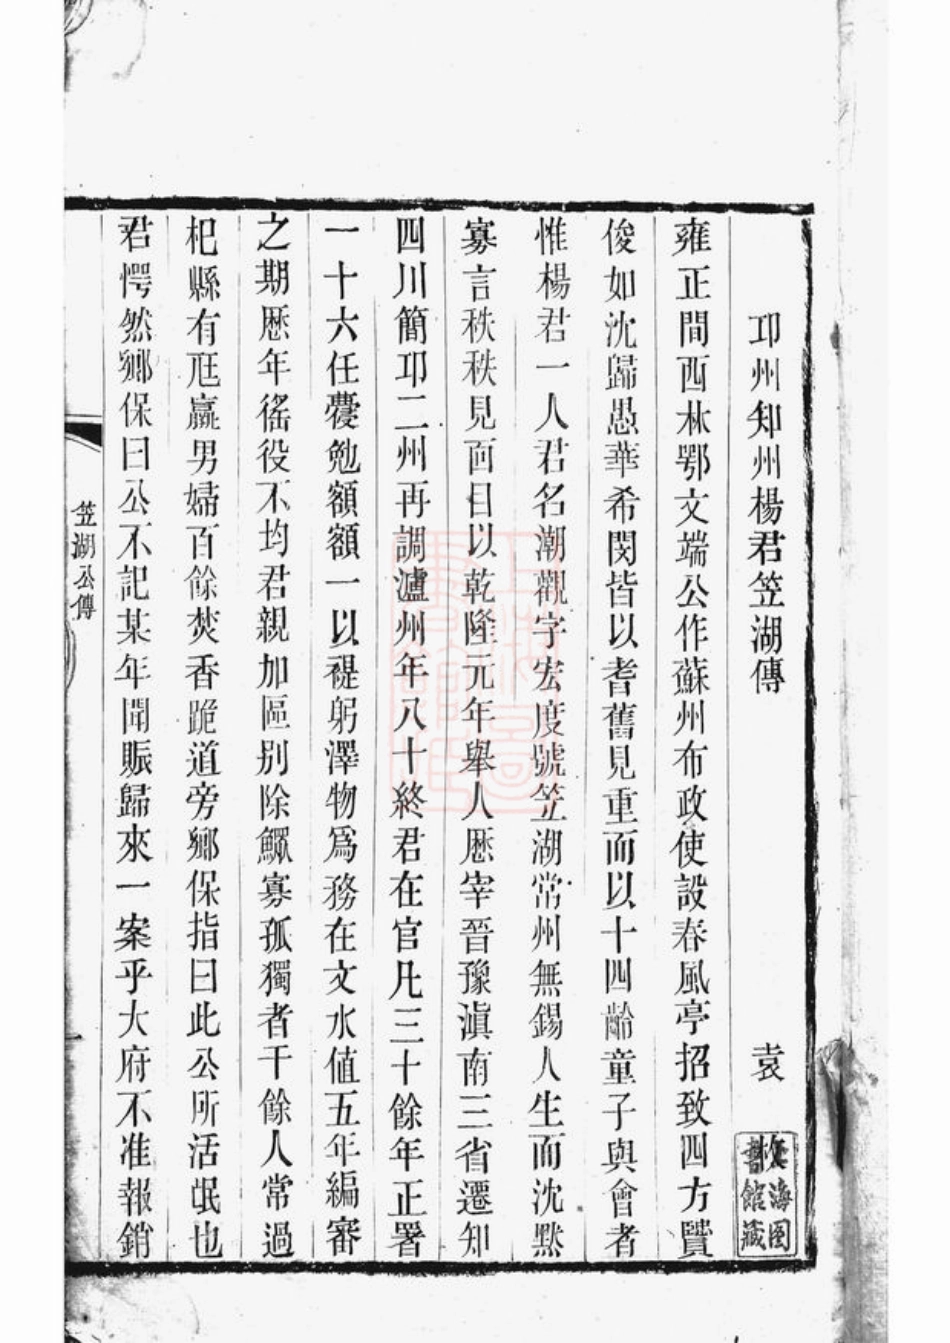 邛州知州楊君笠湖傳
袁枚
雍正間西林鄂文端公作蘇州布政使設春風亭招致四方賢
俊如沈歸愚華希閔皆以耆舊見重而以十四齡童子與會者
惟楊君一人君名潮觀字宏度號笠湖常州無錫人生而沈默
寡言秩秩見面目以乾隆元年舉人歷宰晉豫滇南三省遷知
四川簡邛二州再調瀘州年八十終君在官凡三十餘年正署
一十六任虁勉額額一以禔躬澤物爲務在文水值五年編審
之期歷年徭役不均君親加區别除鰥寡孤獨者千餘人常過
杞縣有尫羸男婦百餘焚香跪道旁鄉保指曰此公所活氓也
君愕然鄉保曰公不記某年聞賑歸來一案乎大府不准報銷
笠湖公傳
上海圖書館藏
上海圖書館藏